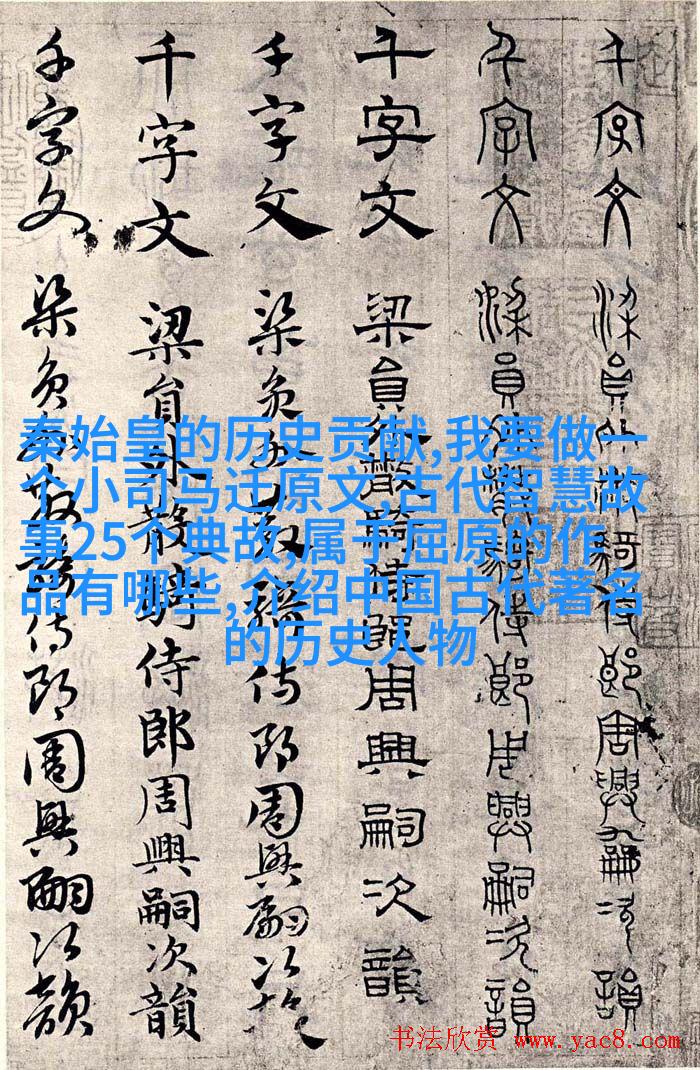 千字文 梁員外散騎侍郎周興嗣次韻
千字文 梁員外散騎侍郎周興嗣次韻
千字文 梁員外散騎侍郎周興嗣次韻
千字文 梁員外散騎侍郎周興嗣次韻
千字文 梁員外散騎侍郎周興嗣次韻
千字文 梁員外散騎侍郎周興嗣次韻
秦始皇的历史贡献,我要做一
个小司马迁原文,古代智慧故
事25个典故,属于屈原的作
品有哪些,介绍中国古代著名
的历史人物
书法欣赏 www.yac8.com